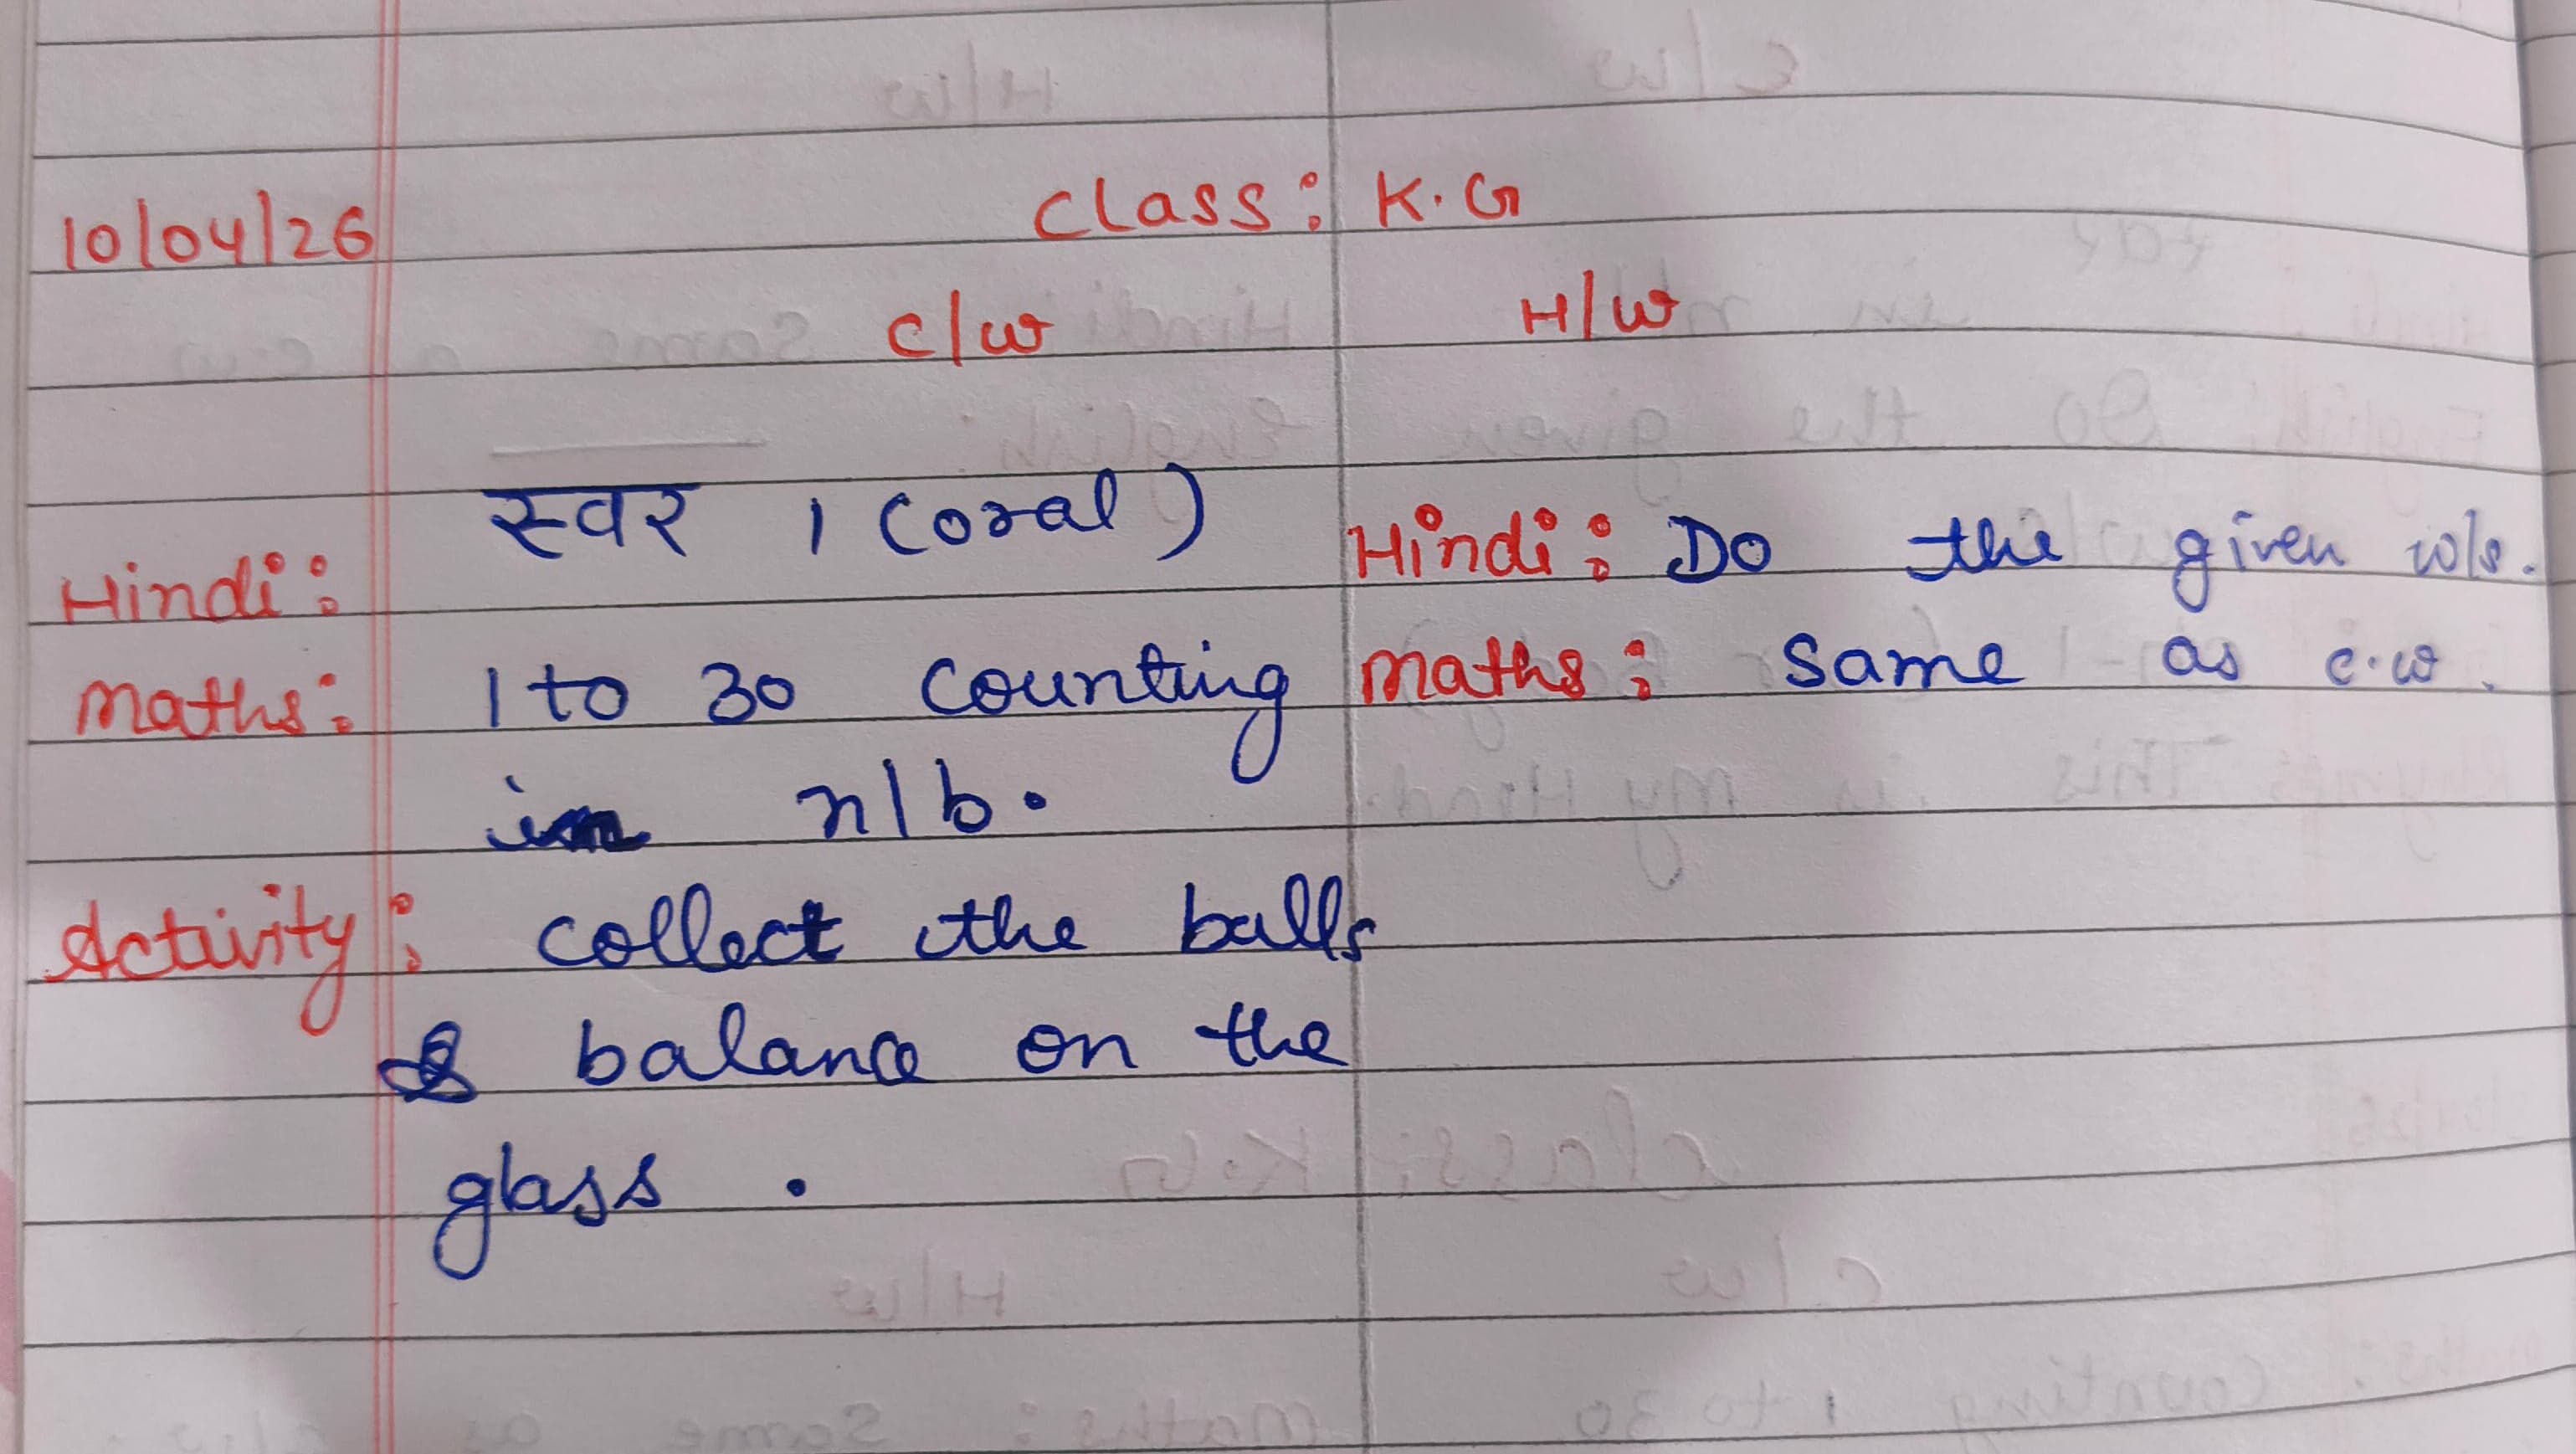 10/04/26 Class: K.G
C/W H/W
Hindi: स्वर । (oral) Hindi: Do the given w/s.
Maths: 1 to 30 counting Maths: Same as c.w.
in n/b.
Activity: collect the balls
& balance on the
glass.